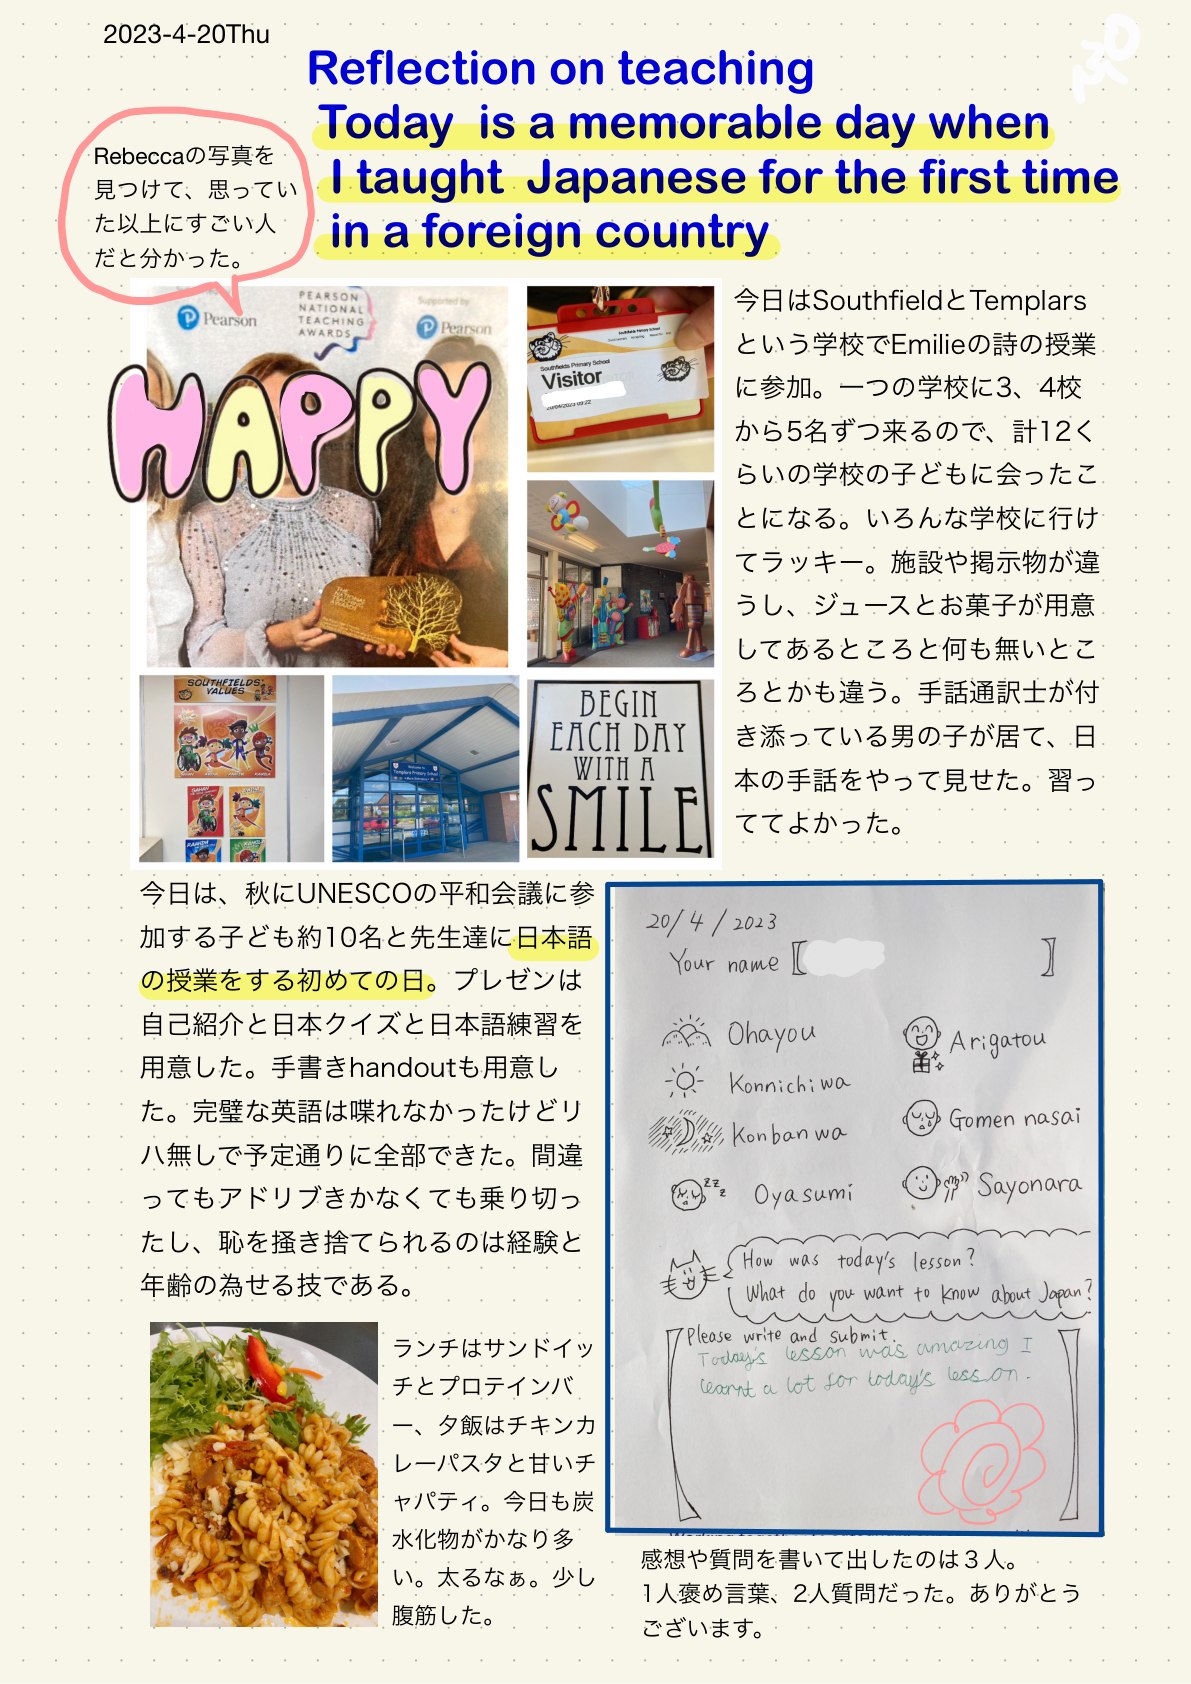 2023-4-20Thu
Reflection on teaching
Today is a memorable day when
I taught Japanese for the first time
in a foreign country
Rebeccaの写真を
見つけて、思ってい
た以上にすごい人
だと分かった。
Pearson
PEARSON
NATIONAL
TEACHING
AWARDS
Supported by
Pearson
HAPPY
Southfields Primary School
Southfields Primary School
Visitor
20/04/2023 09:22
SOUTHFIELDS
VALUES
Welcome to
Templars Primary School
BEGIN
EACH DAY
WITH A
SMILE
今日はSouthfieldとTemplars
という学校でEmilieの詩の授業
に参加。一つの学校に3、4校
から5名ずつ来るので、計12く
らいの学校の子どもに会ったこ
とになる。いろんな学校に行け
てラッキー。施設や掲示物が違
うし、ジュースとお菓子が用意
してあるところと何も無いとこ
ろとかも違う。手話通訳士が付
き添っている男の子が居て、日
本の手話をやって見せた。習っ
ててよかった。
今日は、秋にUNESCOの平和会議に参
加する子ども約10名と先生達に日本語
の授業をする初めての日。プレゼンは
自己紹介と日本クイズと日本語練習を
用意した。手書きhandoutも用意し
た。完璧な英語は喋れなかったけどリ
ハ無しで予定通りに全部できた。間違
ってもアドリブきかなくても乗り切っ
たし、恥を掻き捨てられるのは経験と
年齢の為せる技である。
20/4/2023
Your name【 】
Ohayou
Konnichiwa
Konbanwa
Oyasumi
Arigatou
Gomen nasai
Sayonara
How was today's lesson?
What do you want to know about Japan?
Please write and submit.
Today's lesson was amazing I
learnt a lot for today's lesson.
ランチはサンドイッ
チとプロテインバ
ー、夕飯はチキンカ
レーパスタと甘いチ
ャパティ。今日も炭
水化物がかなり多
い。太るなぁ。少し
腹筋した。
感想や質問を書いて出したのは３人。
1人褒め言葉、2人質問だった。ありがとう
ございます。